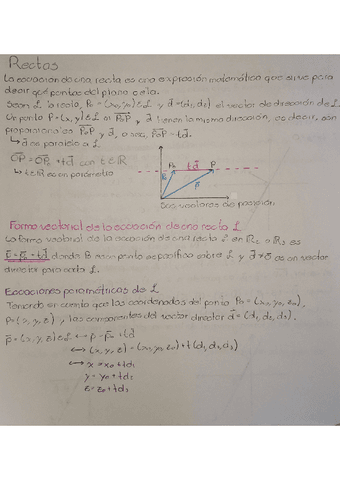 Rectas
La ecuación de una recta es una expresión matemática que sirve para
decir qué puntos del plano cela.
Sean L la recta, P₀ = (x₀,y₀) ∈ L y d = (d₁, d₂) el vector de dirección de L.
Un punto P = (x,y) ∈ L si P₀P, y d tienen la misma dirección, es decir, son
proporcionales P₀P y d, o sea, P₀P = td.
↳ d es paralelo a L
OP = OP₀ + td con t ∈ ℝ
↳ t ∈ ℝ es un parámetro
P₀ td P
P₀ P
Dos vectores de posición
Forma vectorial de la ecuación de una recta L
La forma vectorial de la ecuación de una recta L en ℝ² o ℝ³ es
P = P₀ + td donde P₀ es un punto específico sobre L y d ≠ 0 es un vector
director para esta L.
Ecuaciones paramétricas de L
Tomando en cuenta que las coordenadas del punto P₀ = (x₀, y₀, z₀),
P = (x, y, z) y las componentes del vector director d = (d₁, d₂, d₃).
P = (x, y, z) ∈ L ↔ P = P₀ + td
↔ (x, y, z) = (x₀, y₀, z₀) + t(d₁, d₂, d₃)
↔ x = x₀ + td₁
y = y₀ + td₂
z = z₀ + td₃